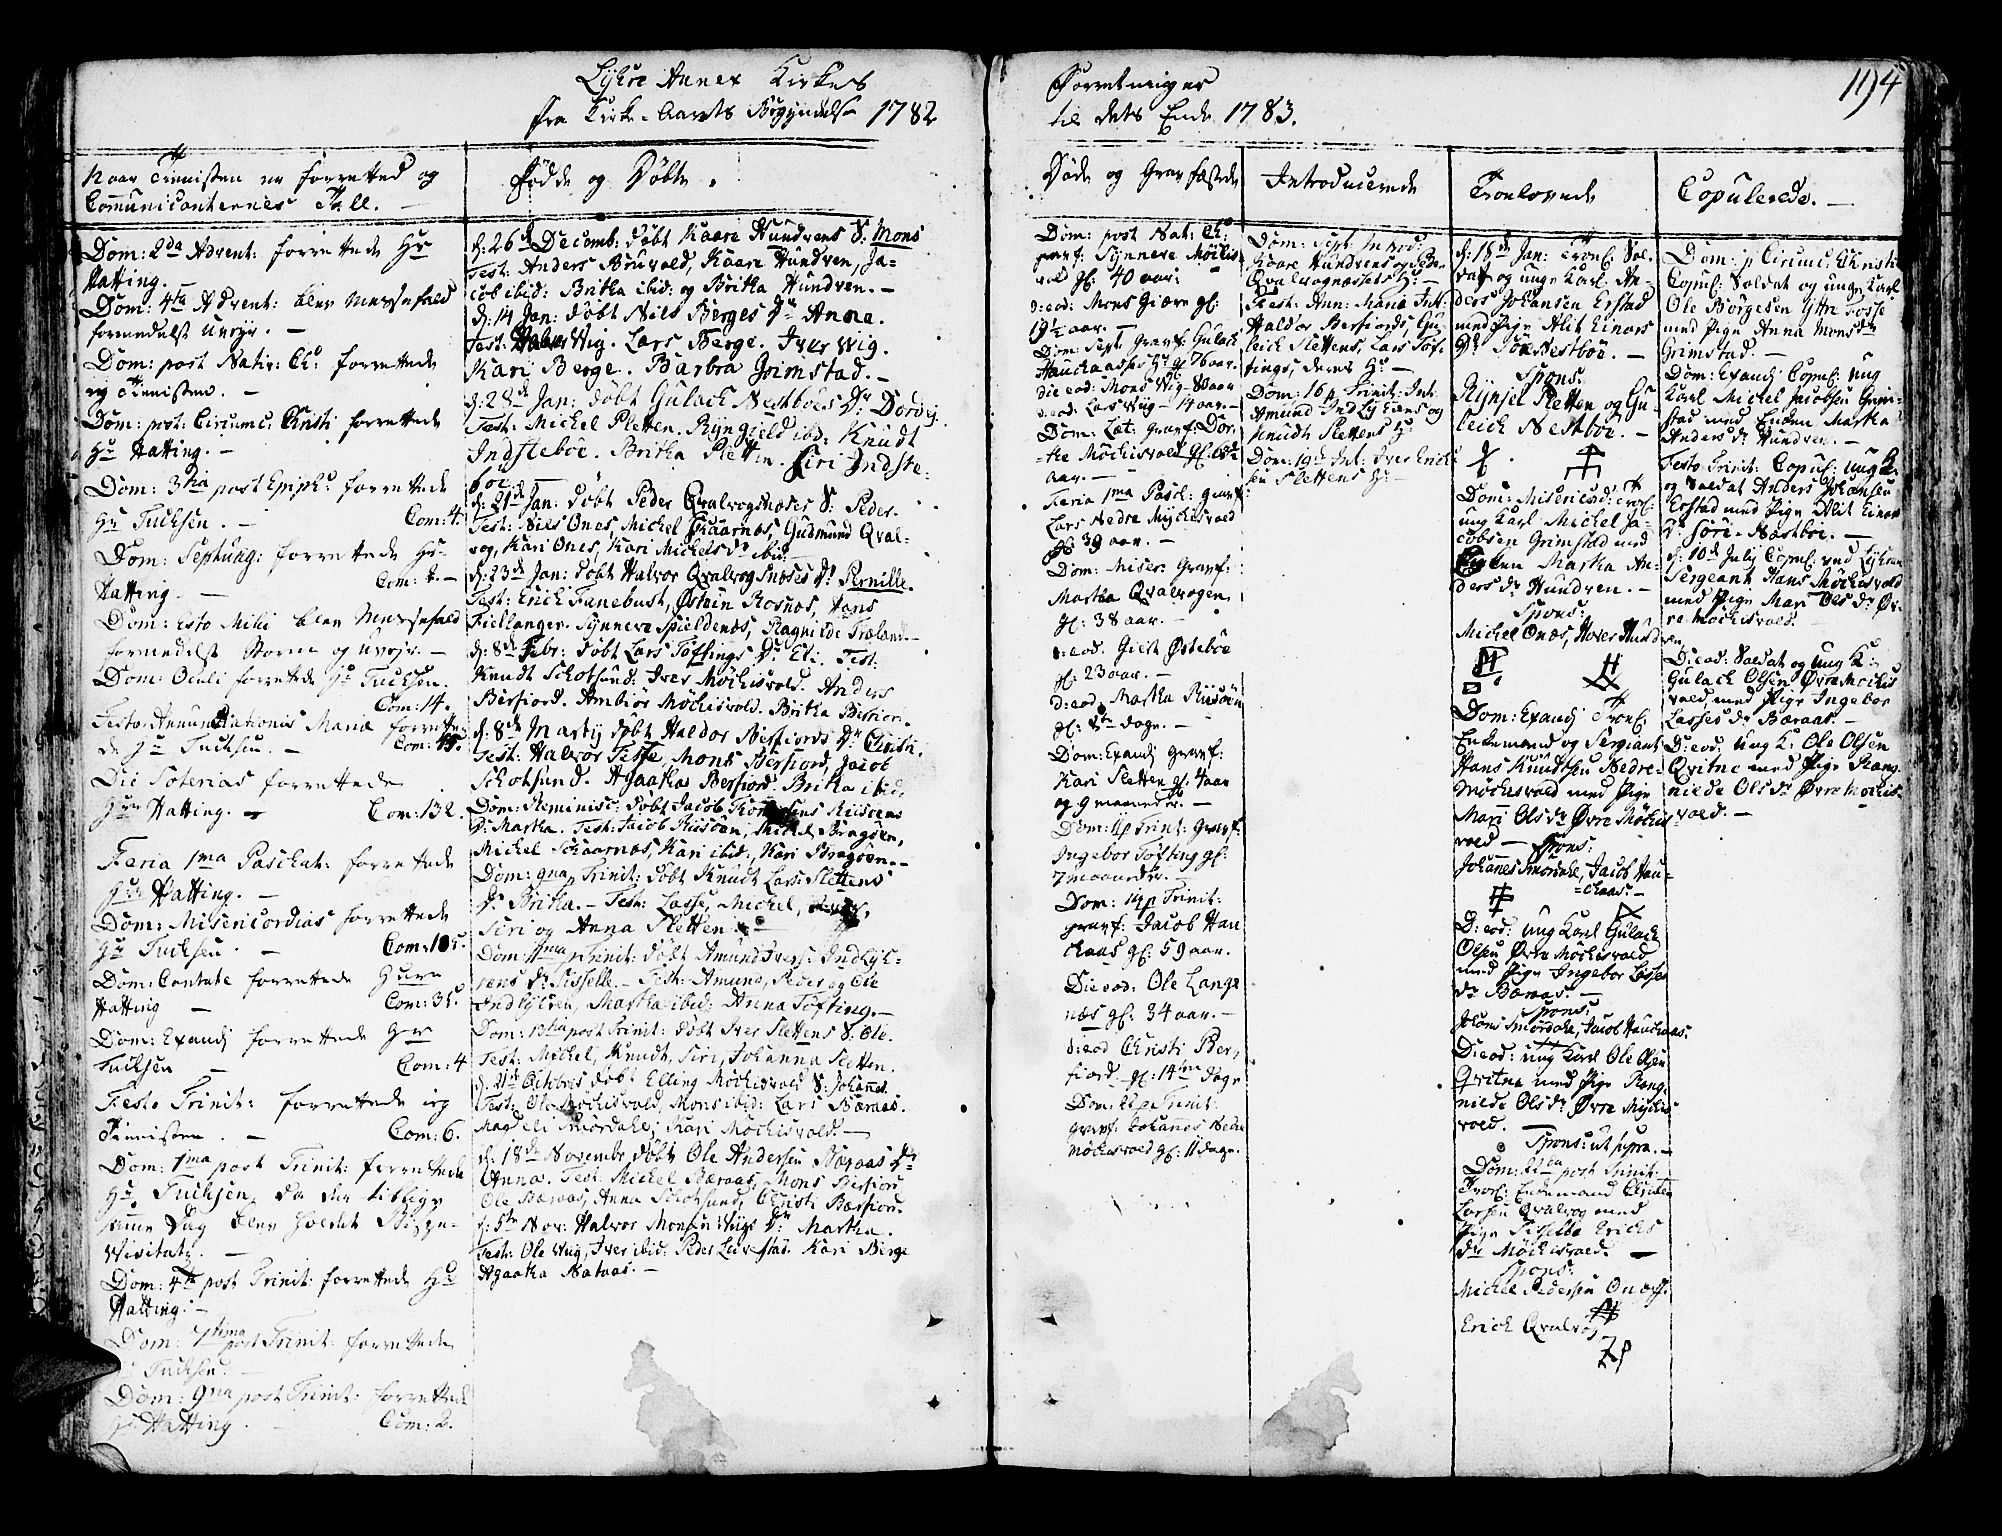 Lÿkre Annex Kirkes
fra Kirke-Aarets Begÿndelse 1782
Naar Tienisten er forretted og
Communicanternes Tall. —
Dom: 2da Advent: forrettede Hr
Hatting. —
Dom: 4ta Advent: blev Messefald
formedelst Uvejr. —
Dom: post Nativ: Ch: forrettede
ieg Tienisten. —
Dom: post: Circumc: Christi forrettede
Hr Hatting. —
Dom: 3tia post Epiph: forrettede
Hr Tuchsen. — Com: 4.
Dom: Septuag: forrettede Hr
Hatting. — Com:
Dom: Esto Mihi blev Messefald
formedelst Storm og Uvejr. —
Dom: Oculi forrettede Hr Tuchsen.
Com: 14.
Festo Annuntiationis Mariæ forrette-
de Hr Tuchsen. — Com:
Die Soterias forrettede
Hr Hatting. — Com: 132.
Feria 1ma Paschat: forrettede
Hr Hatting. —
Dom: Misericordias forrettede
Hr Tuchsen. — Com: 105.
Dom: Cantate forrettede Herr
Hatting — Com: 35.
Dom: Exaudj forrettede Herr
Tuchsen — Com: 4
Festo Trinit: forrettede ieg
Tienisten. — Com: 6.
Dom: 1ma post Trinit: forrettede
Hr Tuchsen, da der tillige
samme Dag blev holdet Bispe-
Visitatz. —
Dom: 4ta post Trinit: forrettede Hr
Hatting. —
Dom: 7tima post Trinit: forrettede
Hr Tuchsen. —
Dom: 9na post Trinit: forrettede
Hr Hatting. — Com: 2.
Fødde og Døbte.
d: 26d Decemb: døbt Kaare Hundvens S: Mons
Test: Anders Bruvold, Kaare Hundven, Ja-
cob ibid: Britha ibid: og Britha Hundven. —
d: 14 Jan: døbt Niels Berges Dr Anna.
Test: Wiig. Lars Berge. Iver Wiig.
Kari Berge. Barbra Grimstad. —
d: 28d Jan: døbt Gulach Nestböes Dr Dordej.
Test: Michel Sletten. Ryngield ibid: Knudt
Indsteböe. Britha Sletten. Siri Indste-
böe —
d: 21d Jan: døbt Peder Qvalvognæses S: Peder.
Test: Niels Ones, Michel Skaarnæs, Gudmund Qval-
vog, Kari Ones, Kari Michels dr ibid. —
d: 23d Jan: døbt Halvor Qvalvognæses Dr Pernille.
Test: Erich Fanebust, Østein Rosnæs, Hans
Kiellanger. Synneve Spieldenæs, Ragnilde Træland. —
d: 8d Febr: døbt Lars Töftings Dr Eli. Test:
Knudt Schotsund: Iver Möchisvold. Anders
Berfiord. Ambiör Möchisvold. Britha Berfior.
d: 8d Martij døbt Haldor Berfiords Dr Christi.
Test: Halvor Tesse, Mons Berfiord, Jacob
Schotsund. Agaatha Berfiord. Britha ibid:
Dom: Reminisc: døbt Jacob Risöens
Dr Martha. Test: Jacob Risöen, Michel Bragöen,
Michel Schaarnæs, Kari ibid:, Kari Bragöen. —
Dom: 9na p Trinit: døbt Knudt Lars: Slettens
Dr Britha. — Test: Lasse, Michel,
Siri og Anna Sletten. —
Dom: 11ma p Trinit: døbt Amund Ivers: Indlyk-
rens Dr Sisselle. — Test: Amund, Peder og Ole
Indlykren, Martha ibid: Anna Töfting. —
Dom: 13tia post Trinit: døbt Iver Slettens S: Ole.
Test: Michel, Knudt, Siri, Johanna Sletten.
d: 21d Octobris døbt Elling Möchisvold S: Johannes.
Test: Ole Möchisvold, Mons ibid: Lars Bæraas.
Magdeli Smördahl, Kari Möchisvold. —
d: 18d Novembr døbt Ole Andersen Bæraas Dr
Anna. Test: Michel Bæraas, Mons Berfiord
Ole Bæraas, Anna Schotsund, Christi Bærfior.
d: 5te Nov: Halvor Monsen Wiigs Dr Martha.
Test: Ole Wiig, Iver ibid: Peder Leirestad. Kari Berge
Agaatha Nataas. —
Forretninger
til dets Ende 1783.
1194
Døde og Grav fæstede
Dom: post Nat: Ch:
gravf: Synneve Möchis
vold gl: 40 aar:
die eod: Mons Giære gl:
19½ aar. —
Dom: Sept: gravf: Gulach
Hauchaasses Hr gl: 76 aar.
die eod: Mons Wiig — 80 aar
die eod: Lars Wiig — 14 aar. —
Dom: Læt: gravf: Dor-
the Möchisvold gl: 68
aar. —
Feria 1ma Pasch: gravf:
Lars Nedre Mychisvold
gl: 39 aar. —
Dom: Miser: Gravf:
Martha Qvalvogen
gl: 38 aar. —
die eod: Giert Østeböe
gl: 23 aar. —
die eod Martha Riisöen
gl: 8te dage. —
Dom: Exaudj gravf:
Kari Sletten gl: 4 aar
og 9 maaneder. —
Dom: 11 p Trinit: gravf:
Ingebor Töfting gl:
7 maaneder. —
Dom: 14 p Trinit:
gravf: Jacob Hau
chaas gl: 59 aar.
Die eod: Ole Lange
næs gl: 34 aar. —
die eod Christi Ber-
fiord gl: 14ten dage
Dom: 22 p Trinit:
gravf: Johanes Nedre
Möchisvold gl: 11 dage.
Introducerede
Dom: Sept: Introd:
Kaare Hundvens og Pe
Qvalvognæses H: —
Fest: Ann: Mariæ Int:
Haldor Berfiords, Gu-
leich Slettens, Lars Töf-
tings, deres H: —
Dom: 16 p Trinit: Int:
Amund Indlykrens og
Knudt Slettens H:
Dom: 19de Int: Iver Erich
sen Slettens H: —
Troelovede
d: 18d Jan: Troel: Sol-
dat og unge Karl An-
ders Johansen Erstad
med Pige Alit Einars
Dr Söre Nestböe. —
Spons:
Ryngel Sletten og Gu-
leich Nestböe. —
Dom: Misericord: Troel:
ung Karl Michel Ja-
cobsen Grimstad med
Enken Martha An-
ders dr Hundven. —
Spons:
Michel Onæs, Haver Hundven.
Dom: Exaudj Troel:
Enkemand og Sergiant
Hans Knudtsen Nedre
Möchisvold med Pige
Mari Ols dr Øvre Möchis
vold — Spons:
Johannes Smördahl, Jacob Hau-
chaas. —
D: eod: ung Karl Gulack
Olsen Øvre Möchisvold
med Pige Ingebor Lasses
dr Bæraas. —
Spons:
Johans Smördahl, Jacob Hauchaas:
D: eod: ung Karl Ole Olsen
Qvitne med Pige Rang-
nilde Ols dr Øvre Mychis
vold. —
Spons: ut supra. —
Dom: 22da post Trinit:
Troel: Enkemand Christen
Larsen Qvalvog med
Pige Sisselle Erichs
dr Möchisvold. —
Spons:
Michel Pedersen Onæs.
Erich Qvalvog
Copulerede. —
Dom: p Circumc: Christi
Copul: Soldat og unge Karl
Ole Börgesen Ytre Fosse
med Pige Anna Mons dr
Grimstad. —
Dom: Exaudj Copul: ung
Karl Michel Jacobsen Grim-
stad med Enken Martha
Anders dr Hundven. —
Festo Trinit: Copul: ung K.
og Soldat Anders Johansen
Erstad med Pige Alit Einars
dr Söre-Nestböe. —
d: 10d Julij Copul: ved Lykren
Sergeant Hans Möchisvold
med Pige Mari Ols dr Øv-
re Möchisvold.
Die eod: Soldat og ung K:
Gulach Olsen Øvre Möchis
vold, med Pige Ingebor
Lasses dr Bæraas. —
D: eod: ung K: Ole Olsen
Qvitne med Pige Rang-
nilde Ols dr Øvre Möchis-
vold. —